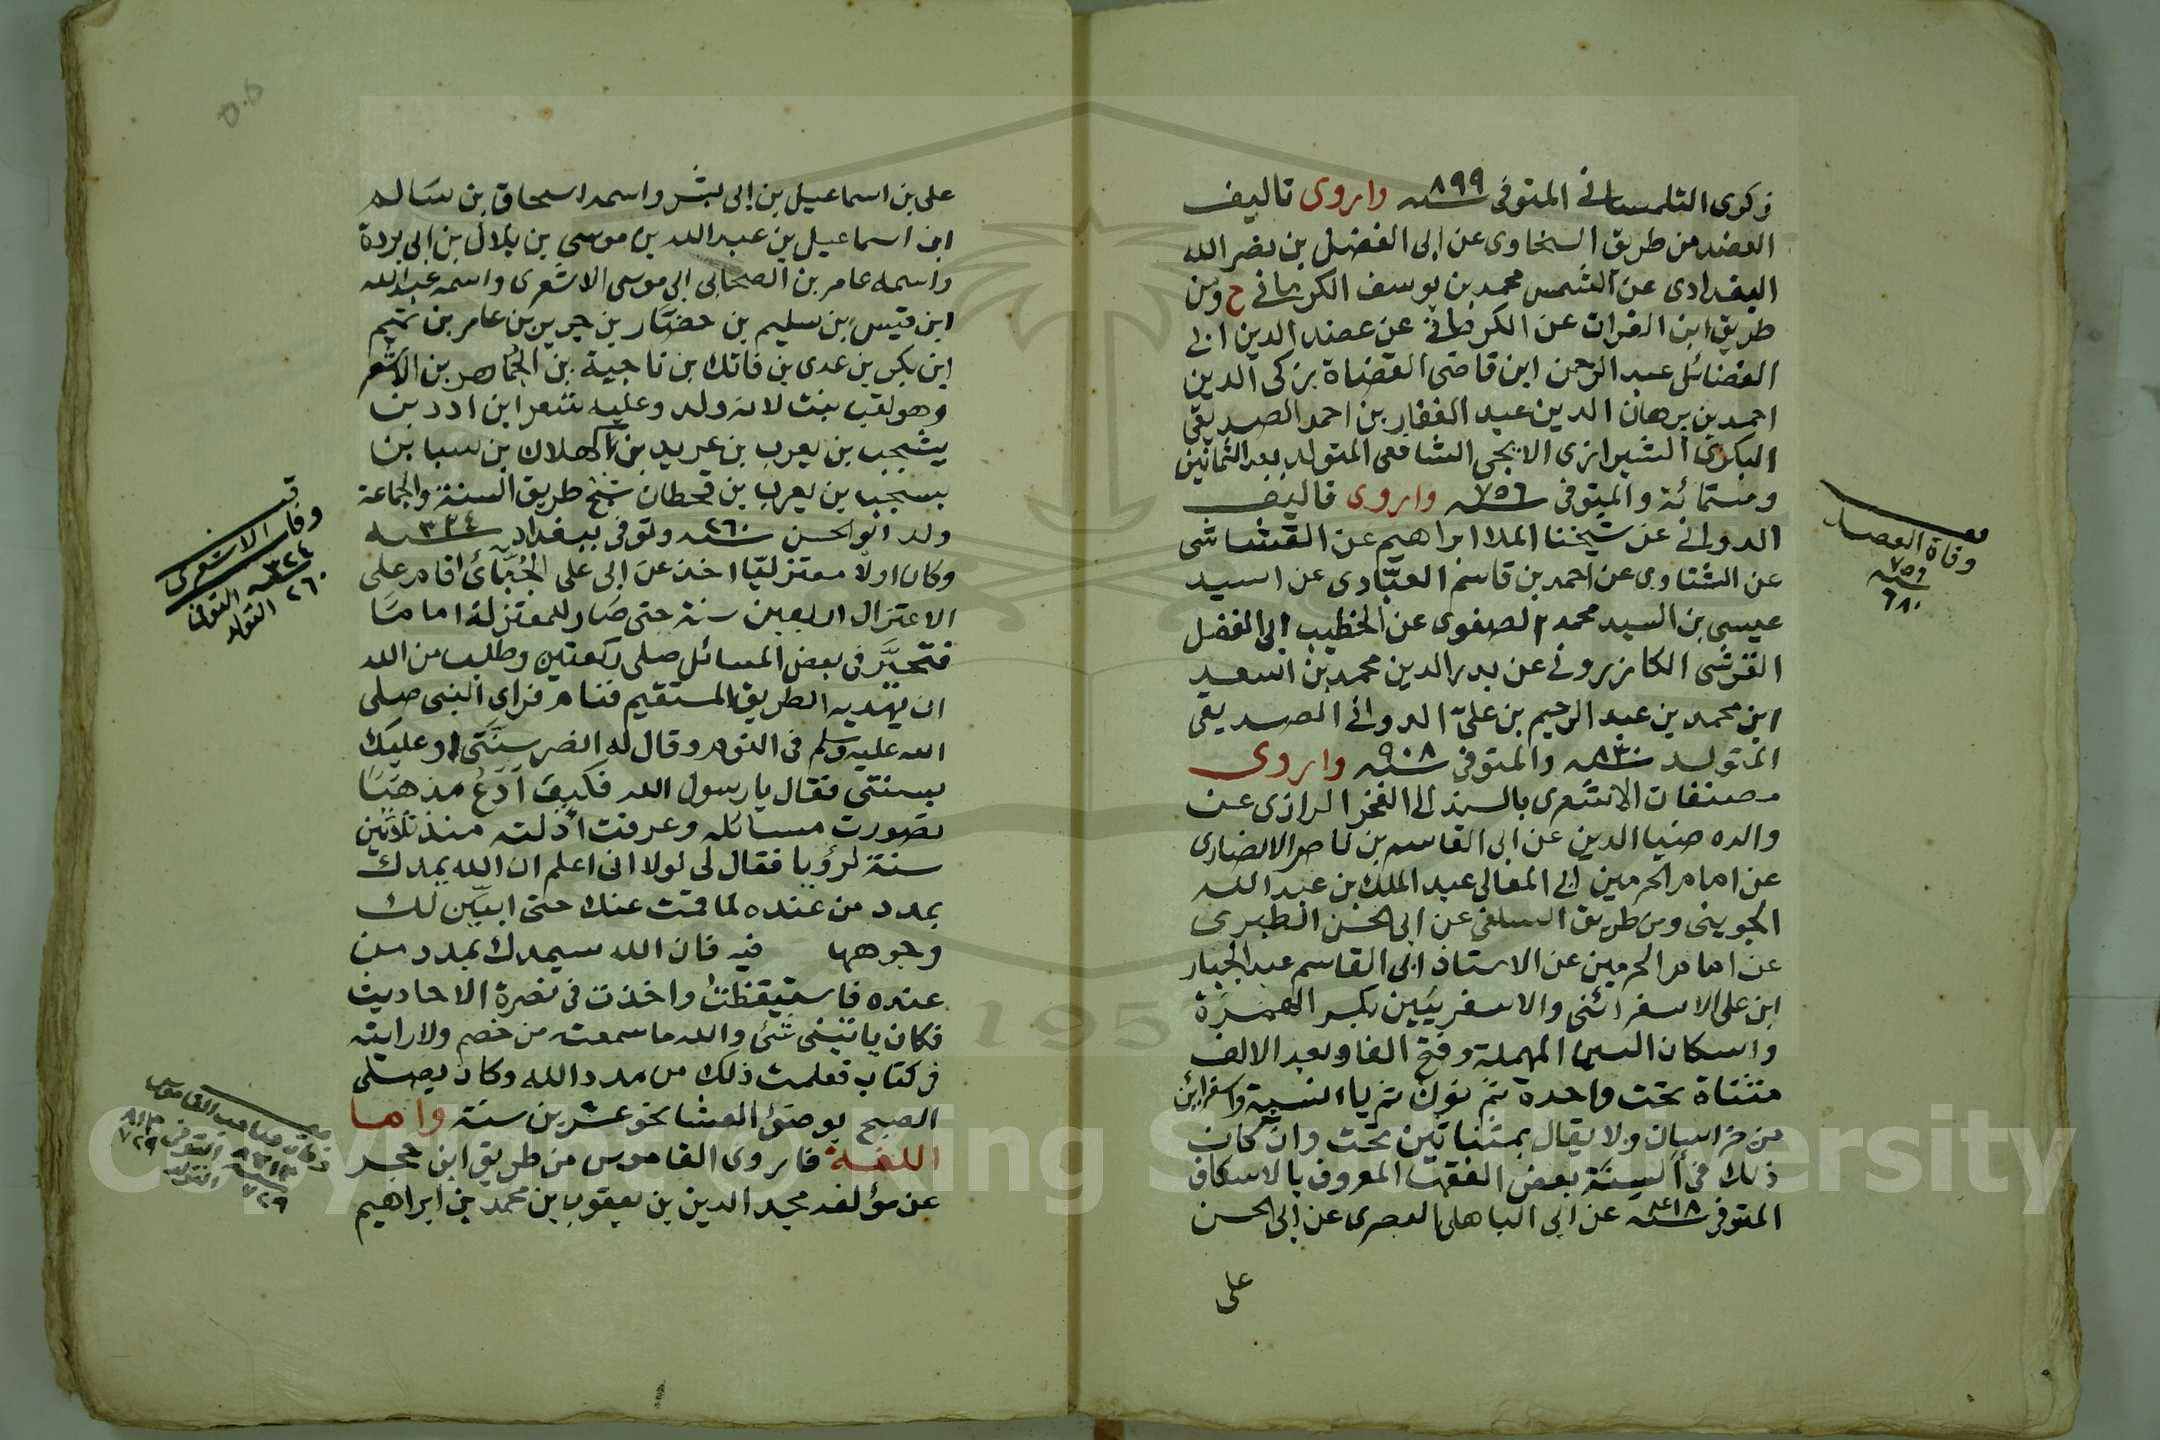 زكرى التلمسانى المتوفى سنه ٨٩٩ واروى تاليف
العضد من طريق السخاوى عن ابى الفضل بن نصر الله
البغدادى عن الشمس محمد بن يوسف الكرمانى ح ومن
طريق ابن الفرات عن الكرمانى عن عضد الدين ابى
الفضائل عبد الرحمن ابن قاضى القضاة زكى الدين
احمد بن برهان الدين عبد الغفار بن احمد الصديقى
البكرى الشيرازى الايجى الشافعى المتولد بعد الثمانين
وستمائة والمتوفى سنه ٧٥٦ واروى تاليف
الدوانى عن شيخنا الملا ابراهيم عن القشاشى
عن الشناوى عن احمد بن قاسم العبّادى عن السيد
عيسى بن السيد محمد الصفوى عن الخطيب ابى الفضل
القرشى الكازرونى عن بدر الدين محمد بن اسعد
ابن محمد بن عبد الرحيم بن علىّ الدوانى الصديقى
المتولد سنه ٨٣٠ والمتوفى سنه ٩٠٨ واروى
مصنفات الاشعرى بالسند الى الفخر الرازى عن
والده ضيا الدين عن ابى القاسم بن ناصر الانصارى
عن امام الحرمين ابى المعالى عبد الملك بن عبد الله
الجوينى ومن طريق السلفى عن ابى الحسن الطبرى
عن امام الحرمين عن الاستاذ ابى القاسم عبد الجبار
ابن على الاسفرائنى والاسفريين بكسر الهمزة
واسكان السين المهملة وفتح الفا وبعد الالف
مثناة تحت واحدة ثم نون ثم ياء النسبة واسفرائن
من خراسان ولا يقال بمثناتين تحت وان كان
ذلك فى السنة بعض الفقها المعروف بالاسكاف
المتوفى سنه عن ابى الباهلى البصرى عن ابى الحسن
على
وفاة العضد
سنه ٧٥٦
٦٨٠
على بن اسماعيل بن ابى بشر واسمه اسحاق بن سالم
ابن اسماعيل بن عبد الله بن موسى بن بلال بن ابى بردة
واسمه عامر بن الصحابى ابى موسى الاشعرى واسمه عبد الله
ابن قيس بن سليم بن حضّار بن حرب بن عامر بن تميم
ابن بكر بن عدى بن فاتك بن ناجية بن الجماهر بن الاشعر
وهو لقب بنت لانه ولد وعليه شعر ابن ادد بن
يشجب بن يعرب بن عريب بن كهلان بن سبا بن
يسجب بن يعرب بن قحطان شيخ طريق السنة والجماعة
ولد ابو الحسن سنه ٢٦٠ وتوفى ببغداد سنه ٣٢٤
وكان اولا معتزليّا اخذ عن ابى على الجُبّائ اقام على
الاعتزال اربعين سنة حتى صار للمعتزلة اماما
فتحيّر فى بعض المسائل صلى ركعتين وطلب من الله
ان يهديه الطريق المستقيم فنام فراى النبى صلى
الله عليه وسلم فى النوم وقال له انصر سنتى وعليك
بسنتى فقال يا رسول الله فكيف ادع مذهبا
تصورت مسائله وعرفت ادلته منذ ثلاثين
سنة لرؤيا فقال لى لولا انى اعلم ان الله يمدك
بمدد من عنده لما قمت عنك حتى ابيّن لك
وجوهها فيه فان الله سيمدك بمدد من
عنده فاستيقظت واخذت فى نصرة الاحاديث
فكان ياتينى شئ والله ما سمعته من خصم ولا رايته
فى كتاب فعلمت ذلك من مدد الله وكان يصلى
الصبح بوضوء العشا نحو عشرين سنة واما
اللغة فاروى القاموس من طريق ابن حجر
عن مؤلفه مجد الدين بن يعقوب بن محمد بن ابراهيم
وفات الاشعرى
سنه ٣٢٤ التوفى
٢٦٠ التولد
وفات صاحب القاموس
التوفى ٨١٣
٧٢٩ التولد
٧٢٩
Copyright © King Saud University
195